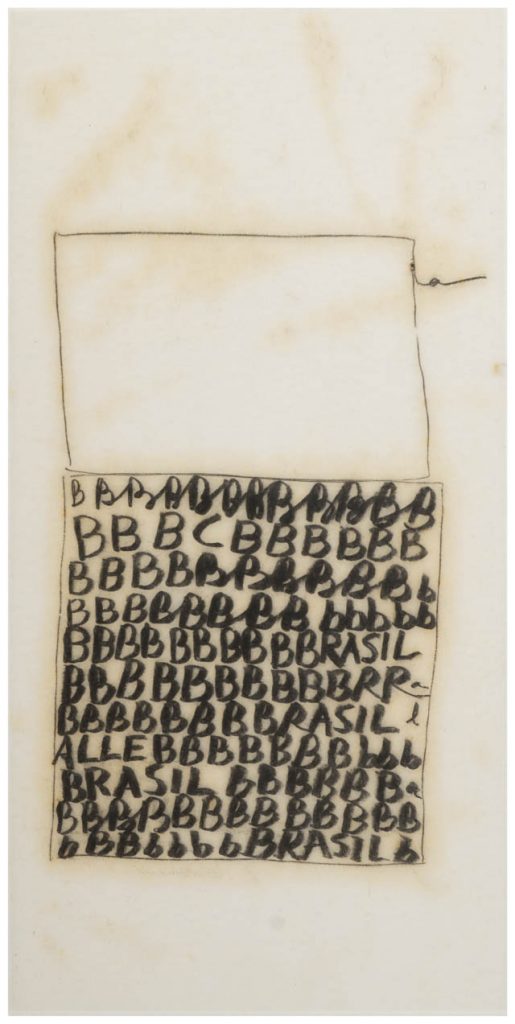 B B B B B B B B B B B B
B B B C B B B B B B
B B B B B B B B B B b
B B B B B B B B b b b b b
B B B B B B B B B BRASIL
B B B B B B B B B B R R a
B B B B B B B BRASIL l
ALLE B B B B B B B b b b
BRASIL B B B B B B a
B B B B B B B B B B B B
b B B b b b b BRASIL b